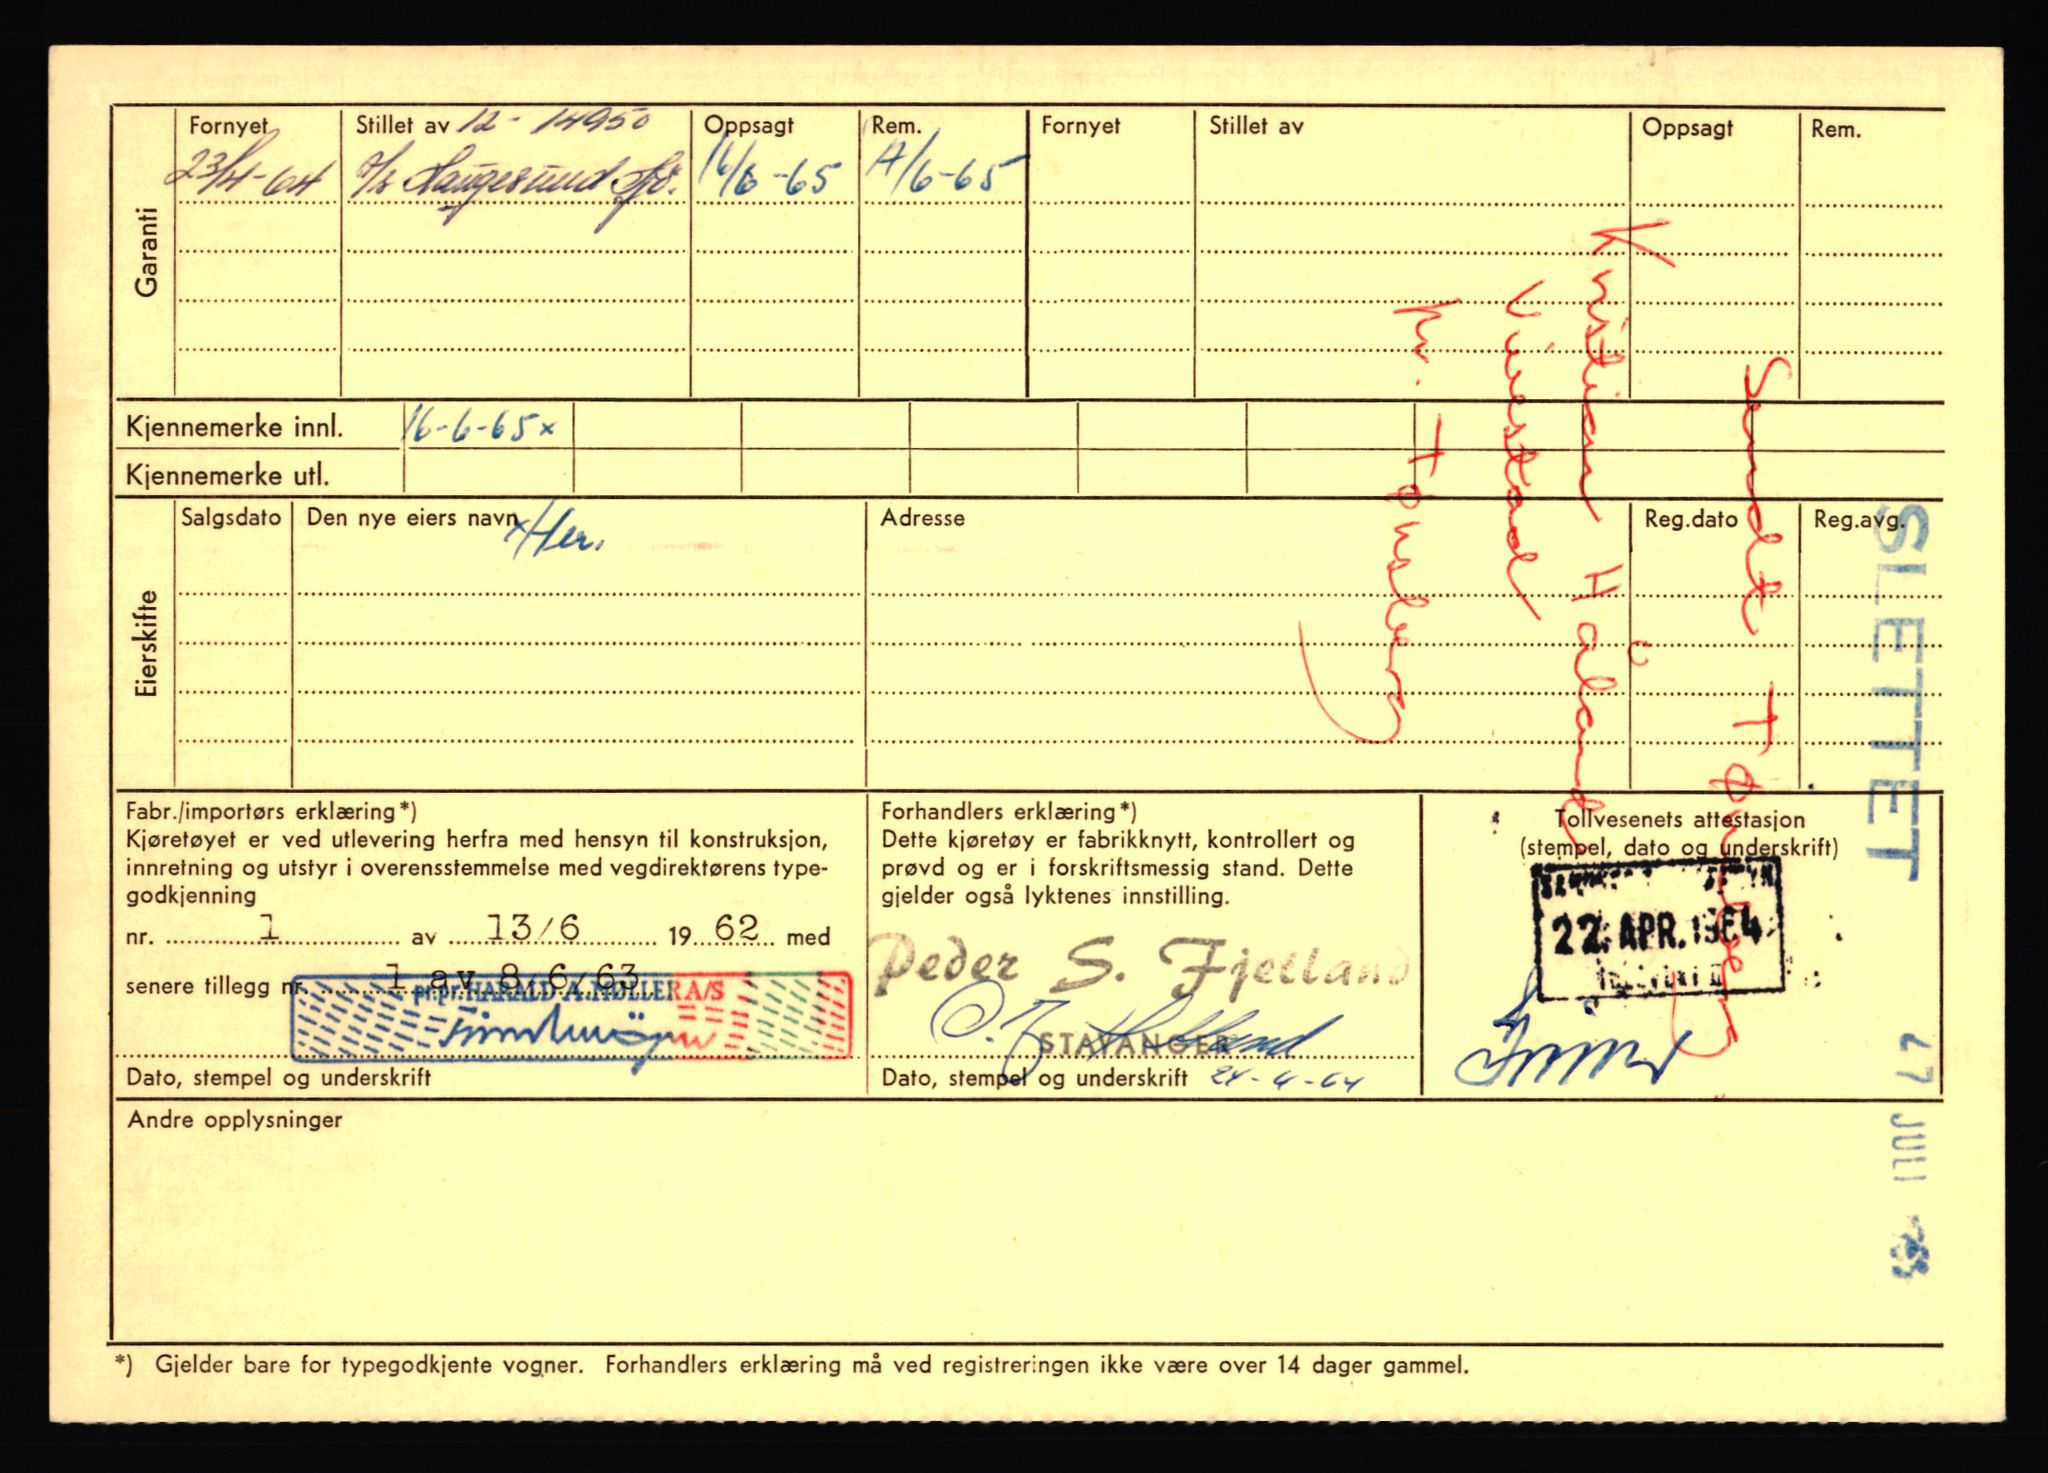 Fornyet Stillet av 12-14950 Oppsagt Rem. Fornyet Stillet av Oppsagt Rem.
23/4-64 A/s Haugesund 16/6-65 A/6-65
Garanti
Kjennemerke innl. 16-6-65x
Kjennemerke utl.
Salgsdato Den nye eiers navn Adresse Reg.dato Reg.avg.
xHer.
Eierskifte
Sendt Tønsberg
Kristian Håland
Vinestad
pr. Tønsberg
SLETTET
JULI
Fabr./importørs erklæring*)
Kjøretøyet er ved utlevering herfra med hensyn til konstruksjon,
innretning og utstyr i overensstemmelse med vegdirektørens type-
godkjenning
nr. 1 av 13/6 1962 med
senere tillegg nr. 1 av 8/6/63
pr.pr. HARALD A. MØLLER A/S
Dato, stempel og underskrift
Forhandlers erklæring*)
Dette kjøretøy er fabrikknytt, kontrollert og
prøvd og er i forskriftsmessig stand. Dette
gjelder også lyktenes innstilling.
Peder S. Fjelland
STAVANGER
Dato, stempel og underskrift 24-4-64
Tollvesenets attestasjon
(stempel, dato og underskrift)
22. APR. 1964
Andre opplysninger
*) Gjelder bare for typegodkjente vogner. Forhandlers erklæring må ved registreringen ikke være over 14 dager gammel.